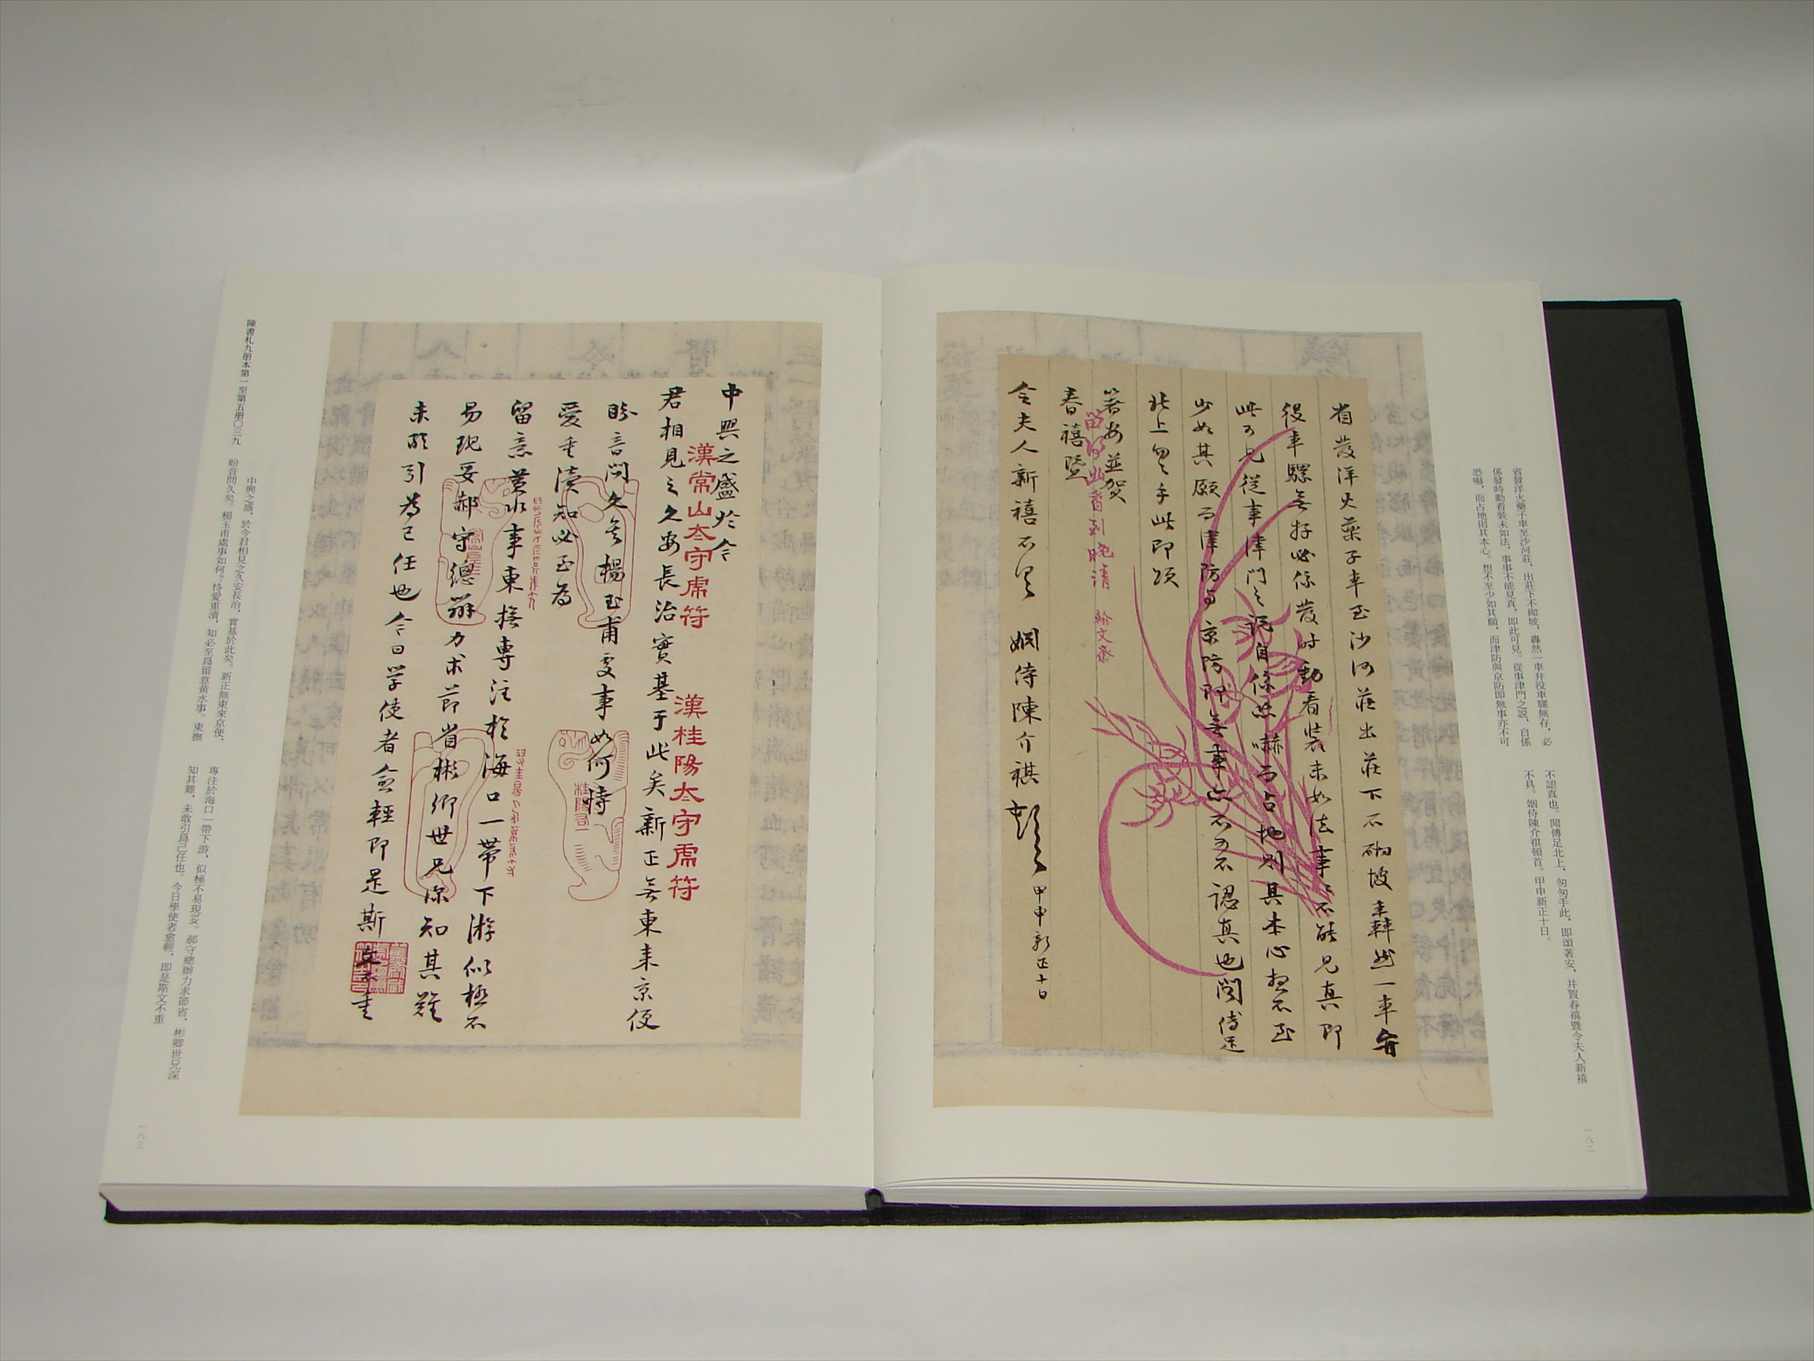 省發洋火藥子車至沙河莊出莊下不砌坡轟然一車弁
役車騾無存必係發時動看裝未如法事事不能見真即
此可見從事津門之說自係恐嚇而占地則其本心想不至
少如其願而津防與京防即無事亦不可不認真也聞傅足
北上匆匆手此即頌
著安並賀
春禧暨
令夫人新禧不具 姻侍陳介祺頓首 甲申新正十日
翰文齋
省發洋火藥子車至沙河莊,出莊下不砌坡,轟然一車弁役車騾無存,必
係發時動看裝未如法,事事不能見真,即此可見。從事津門之說,自係
恐嚇,而占地則其本心,想不至少如其願,而津防與京防即無事亦不可
不認真也。聞傅足北上,匆匆手此,即頌著安,并賀春禧暨令夫人新禧
不具。姻侍陳介祺頓首。甲申新正十日。
一八二
中興之盛於今
君相見之久安長治實基于此矣新正無東來京便
盼音問久矣楊玉甫處事如何恃
愛重瀆知必至為
留意黃水事東撫專注於海口一帶下游似極不
易現妥郝守總辦力求節省彬卿世兄深知其難
未敢引為己任也今日学使者愈輕即是斯文不重
漢常山太守虎符
漢桂陽太守虎符
中興之盛,於今君相見之久安長治,實基於此矣。新正無東來京便,
盼音問久矣。楊玉甫處事如何?恃愛重瀆,知必至爲留意黃水事。東撫
專注於海口一帶下游,似極不易現妥。郝守總辦力求節省,彬卿世兄深
知其難,未敢引爲己任也。今日學使者愈輕,即是斯文不重
陳書札九册本第一至第五册〇三九
一八三